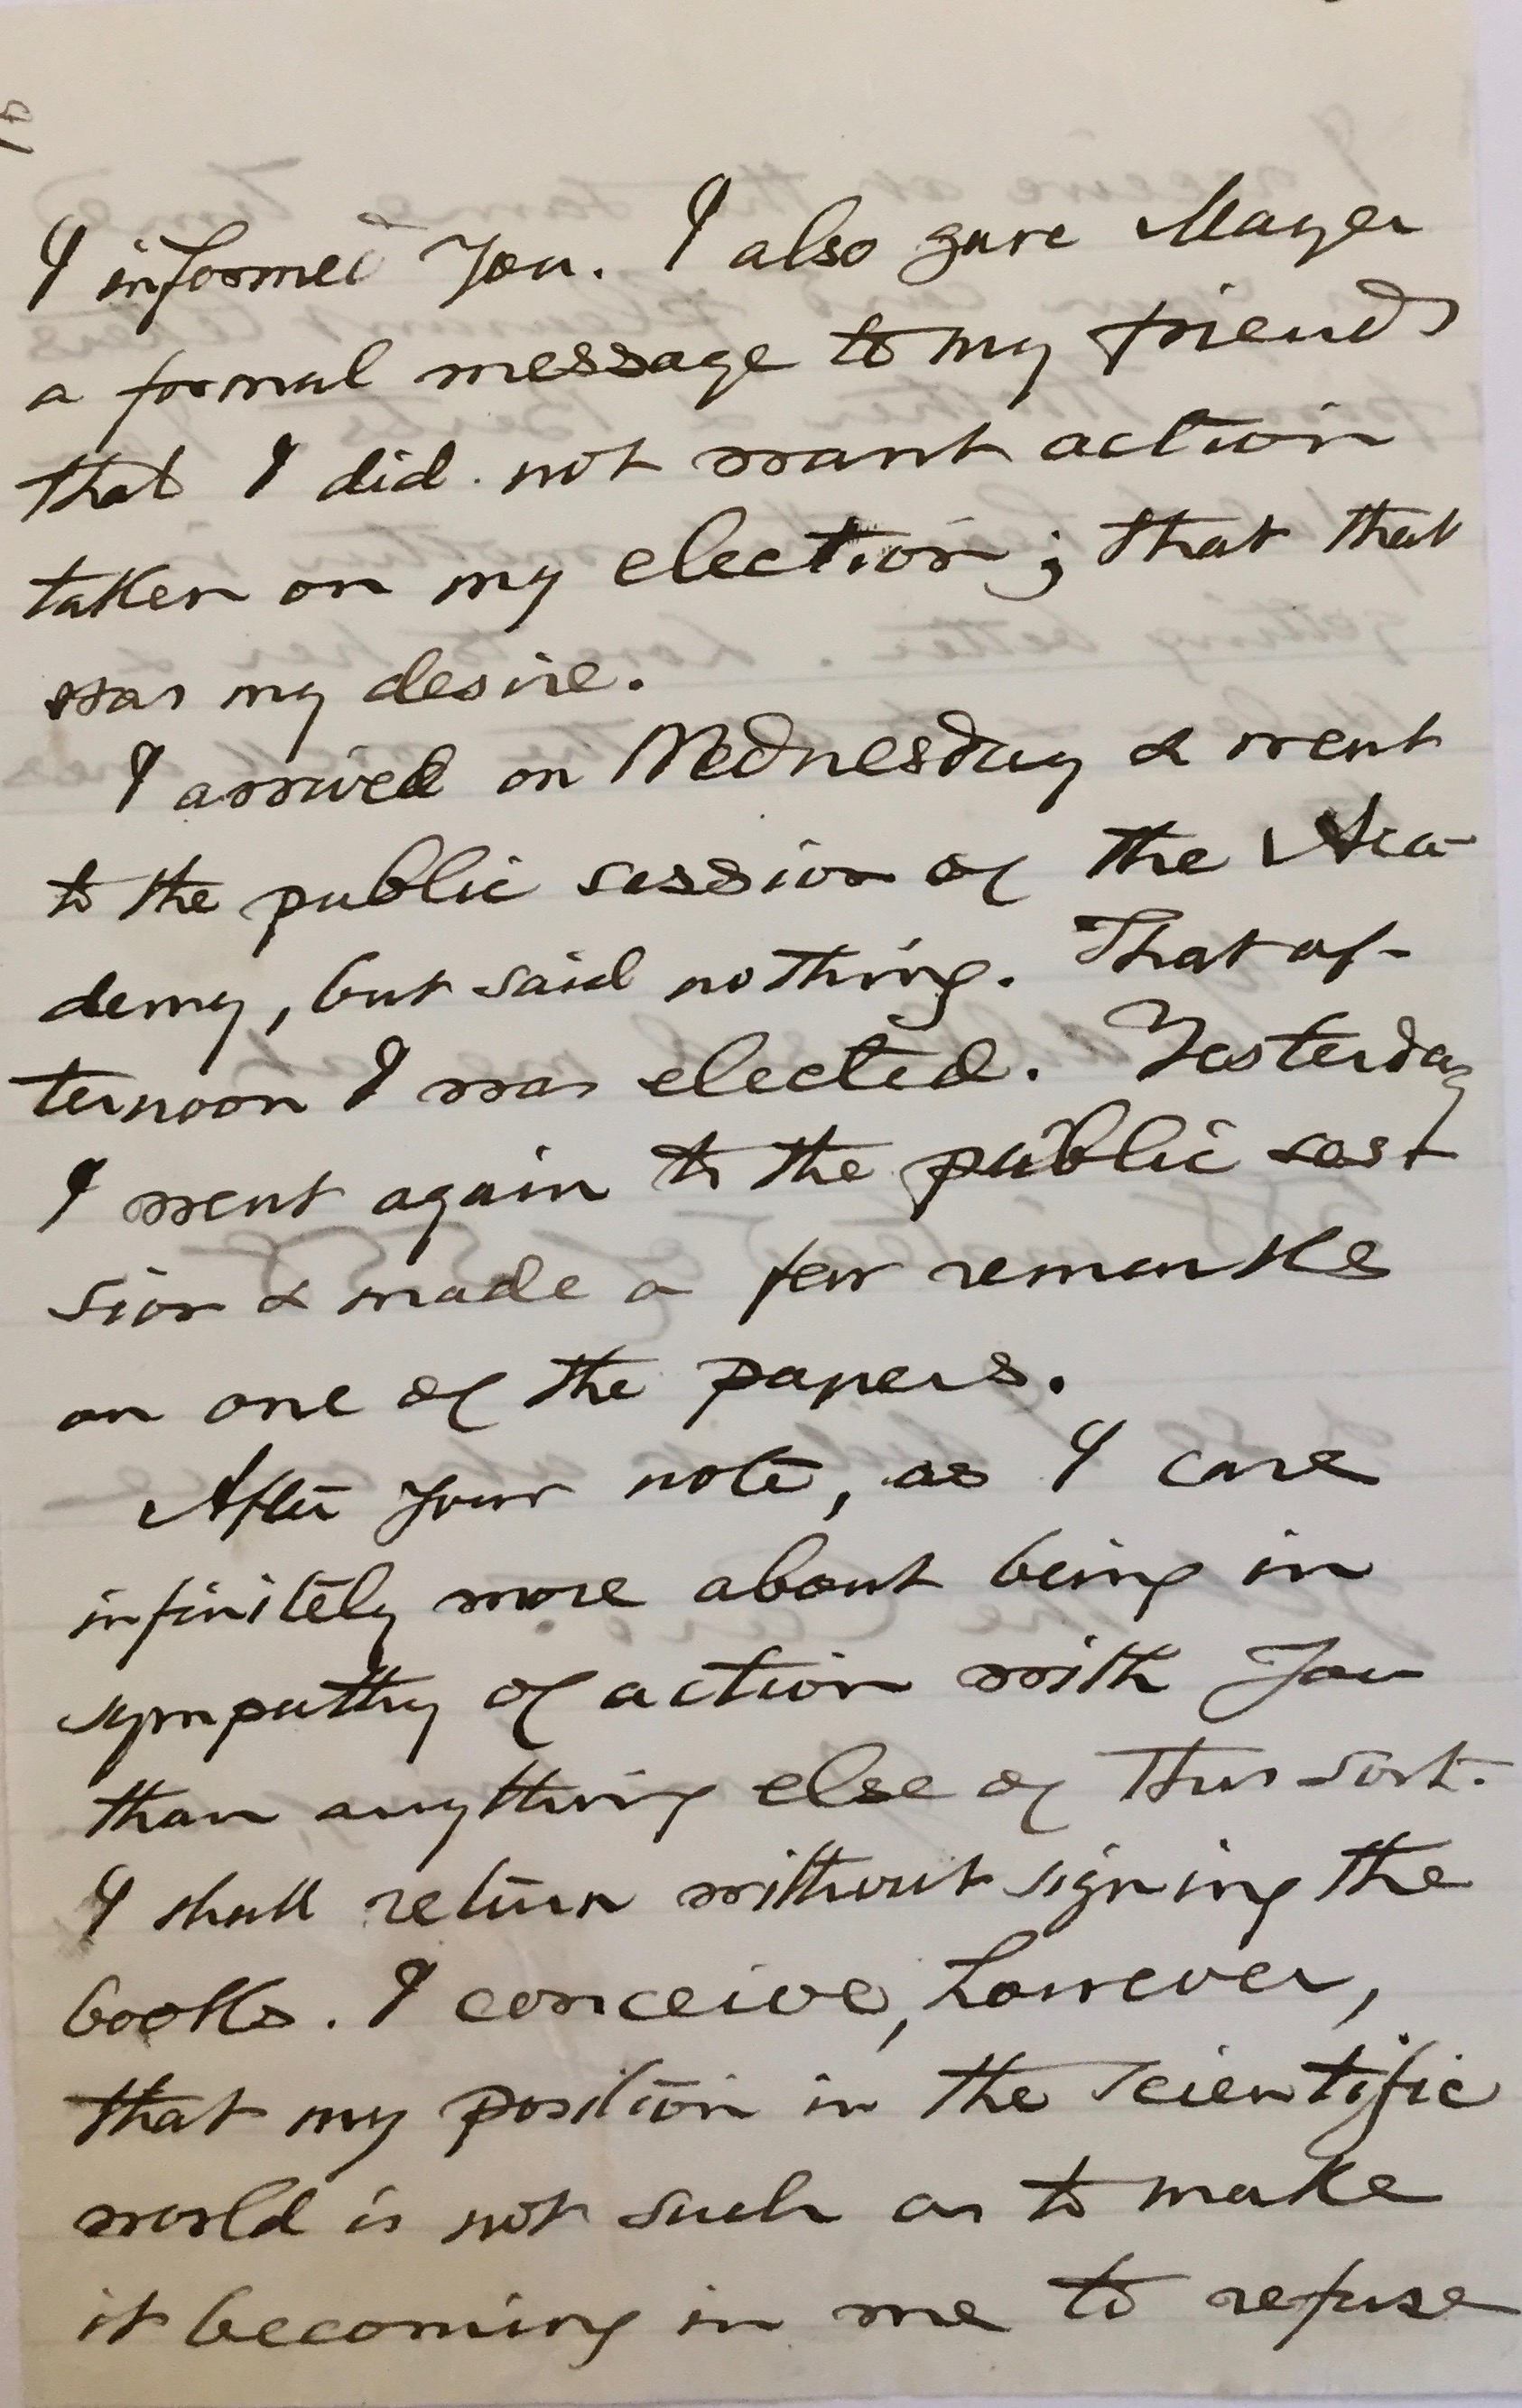 I informed you. I also gave Mayer
a formal message to my friends
that I did not want action
taken on my election; that that
was my desire.
I arrived on Wednesday & went
to the public session of the Aca-
demy, but said nothing. That af-
ternoon I was elected. Yesterday
I went again to the public ses-
sion & made a few remarks
on one of the papers.
After your note, as I care
infinitely more about being in
sympathy of action with you
than anything else of this sort.
I shall return without signing the
books. I conceive, however,
that my position in the scientific
world is not such as to make
it becoming in me to refuse